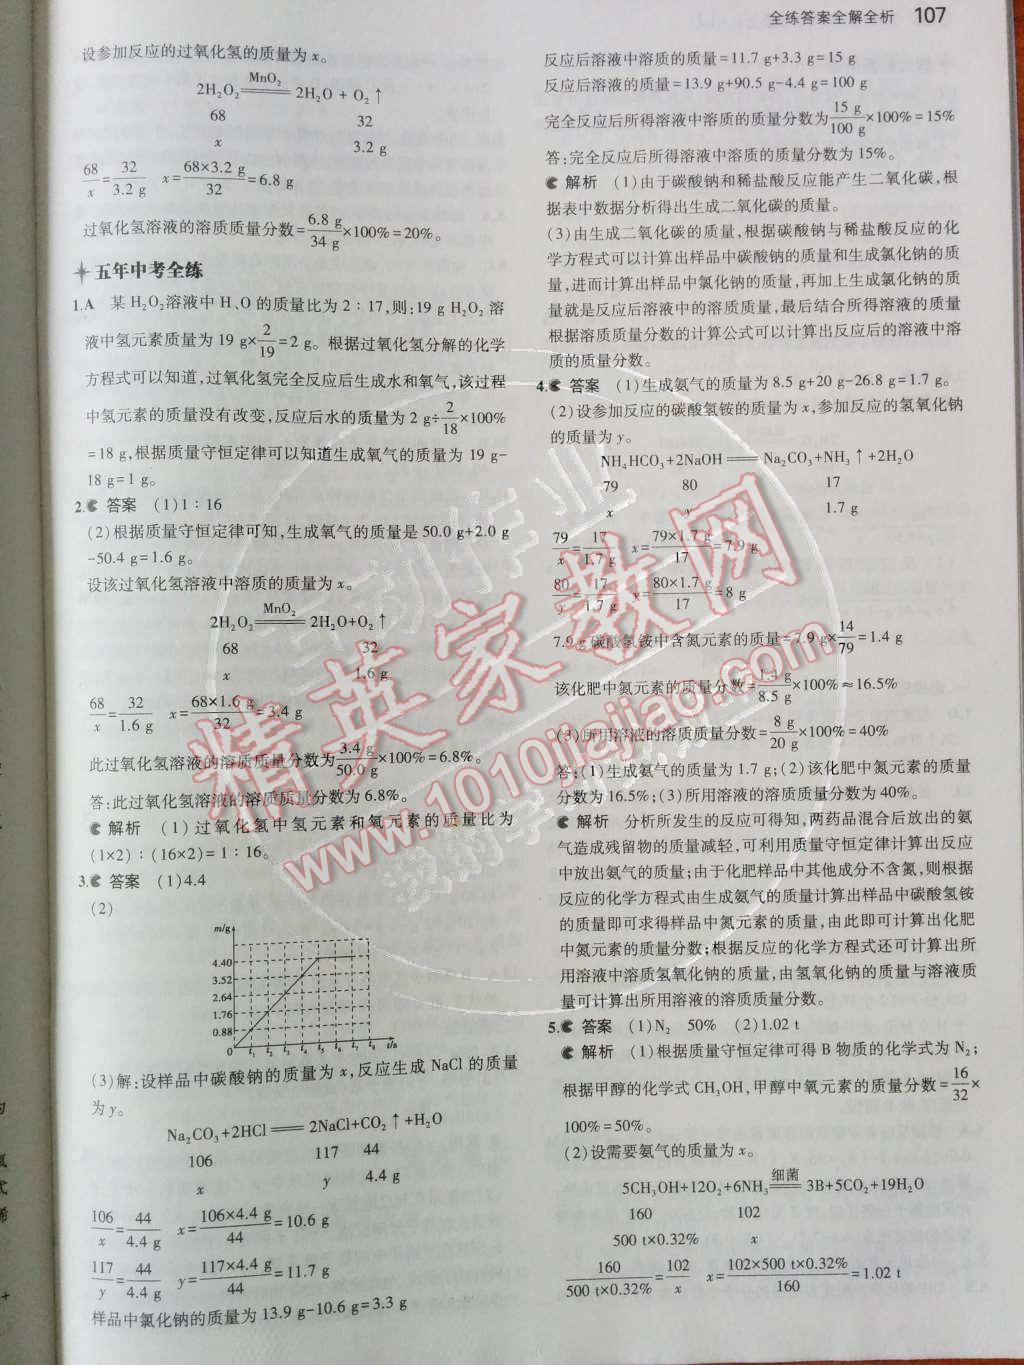 全练答案全解全析 107
设参加反应的过氧化氢的质量为 x。
MnO₂
2H₂O₂═══2H₂O + O₂↑
68 32
x 3.2 g
68/x=32/3.2 g x=68×3.2 g/32=6.8 g
过氧化氢溶液的溶质质量分数=6.8 g/34 g×100%=20%。
五年中考全练
1.A 某 H₂O₂溶液中 H、O 的质量比为 2∶17,则:19 g H₂O₂ 溶
液中氢元素质量为 19 g×2/19=2 g。根据过氧化氢分解的化学
方程式可以知道,过氧化氢完全反应后生成水和氧气,该过程
中氢元素的质量没有改变,反应后水的质量为 2 g÷2/18×100%
=18 g,根据质量守恒定律可以知道生成氧气的质量为 19 g-
18 g=1 g。
2. 答案 (1)1∶16
(2)根据质量守恒定律可知,生成氧气的质量是 50.0 g+2.0 g
-50.4 g=1.6 g。
设该过氧化氢溶液中溶质的质量为 x。
MnO₂
2H₂O₂═══2H₂O+O₂↑
68 32
x 1.6 g
68/x=32/1.6 g x=68×1.6 g/32=3.4 g
此过氧化氢溶液的溶质质量分数为3.4 g/50.0 g×100%=6.8%。
答:此过氧化氢溶液的溶质质量分数为 6.8%。
解析 (1)过氧化氢中氢元素和氧元素的质量比为
(1×2)∶(16×2)=1∶16。
3. 答案 (1)4.4
(2)
m/g
4.40
3.52
2.64
1.76
0.88
0 t₁ t₂ t₃ t₄ t₅ t₆ t₇ t₈ t/s
(3)解:设样品中碳酸钠的质量为 x,反应生成 NaCl 的质量
为 y。
Na₂CO₃+2HCl═══2NaCl+CO₂↑+H₂O
106 117 44
x y 4.4 g
106/x=44/4.4 g x=106×4.4 g/44=10.6 g
117/y=44/4.4 g y=117×4.4 g/44=11.7 g
样品中氯化钠的质量为 13.9 g-10.6 g=3.3 g
反应后溶液中溶质的质量=11.7 g+3.3 g=15 g
反应后溶液的质量=13.9 g+90.5 g-4.4 g=100 g
完全反应后所得溶液中溶质的质量分数为15 g/100 g×100%=15%
答:完全反应后所得溶液中溶质的质量分数为 15%。
解析 (1)由于碳酸钠和稀盐酸反应能产生二氧化碳,根
据表中数据分析得出生成二氧化碳的质量。
(3)由生成二氧化碳的质量,根据碳酸钠与稀盐酸反应的化
学方程式可以计算出样品中碳酸钠的质量和生成氯化钠的质
量,进而计算出样品中氯化钠的质量,再加上生成氯化钠的质
量就是反应后溶液中的溶质质量,最后结合所得溶液的质量
根据溶质质量分数的计算公式可以计算出反应后的溶液中溶
质的质量分数。
4. 答案 (1)生成氨气的质量为 8.5 g+20 g-26.8 g=1.7 g。
(2)设参加反应的碳酸氢铵的质量为 x,参加反应的氢氧化钠
的质量为 y。
NH₄HCO₃+2NaOH═══Na₂CO₃+NH₃↑+2H₂O
79 80 17
x y 1.7 g
79/x=17/1.7 g x=79×1.7 g/17=7.9 g
80/y=17/1.7 g x=80×1.7 g/17=8 g
7.9 g 碳酸氢铵中含氮元素的质量=7.9 g×14/79=1.4 g
该化肥中氮元素的质量分数=1.4 g/8.5 g×100%≈16.5%
(3)所用溶液的溶质质量分数=8 g/20 g×100%=40%
答:(1)生成氨气的质量为 1.7 g;(2)该化肥中氮元素的质量
分数为 16.5%;(3)所用溶液的溶质质量分数为 40%。
解析 分析所发生的反应可得知,两药品混合后放出的氨
气造成残留物的质量减轻,可利用质量守恒定律计算出反应
中放出氨气的质量;由于化肥样品中其他成分不含氮,则根据
反应的化学方程式由生成氨气的质量计算出样品中碳酸氢铵
的质量即可求得样品中氮元素的质量,由此即可计算出化肥
中氮元素的质量分数;根据反应的化学方程式还可计算出所
用溶液中溶质氢氧化钠的质量,由氢氧化钠的质量与溶液质
量可计算出所用溶液的溶质质量分数。
5. 答案 (1)N₂ 50% (2)1.02 t
解析 (1)根据质量守恒定律可得 B 物质的化学式为 N₂;
根据甲醇的化学式 CH₃OH,甲醇中氧元素的质量分数=16/32×
100%=50%。
(2)设需要氨气的质量为 x。
细菌
5CH₃OH+12O₂+6NH₃═══3B+5CO₂+19H₂O
160 102
500 t×0.32% x
160/500 t×0.32%=102/x x=102×500 t×0.32%/160=1.02 t
精英家教网
www.1010jiajiao.com